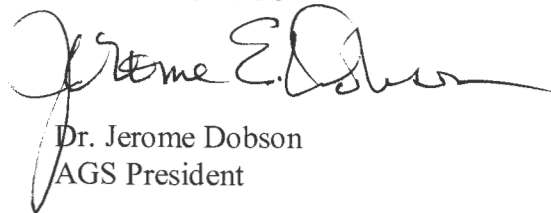 Jerome E. Dobson
Dr. Jerome Dobson
AGS President